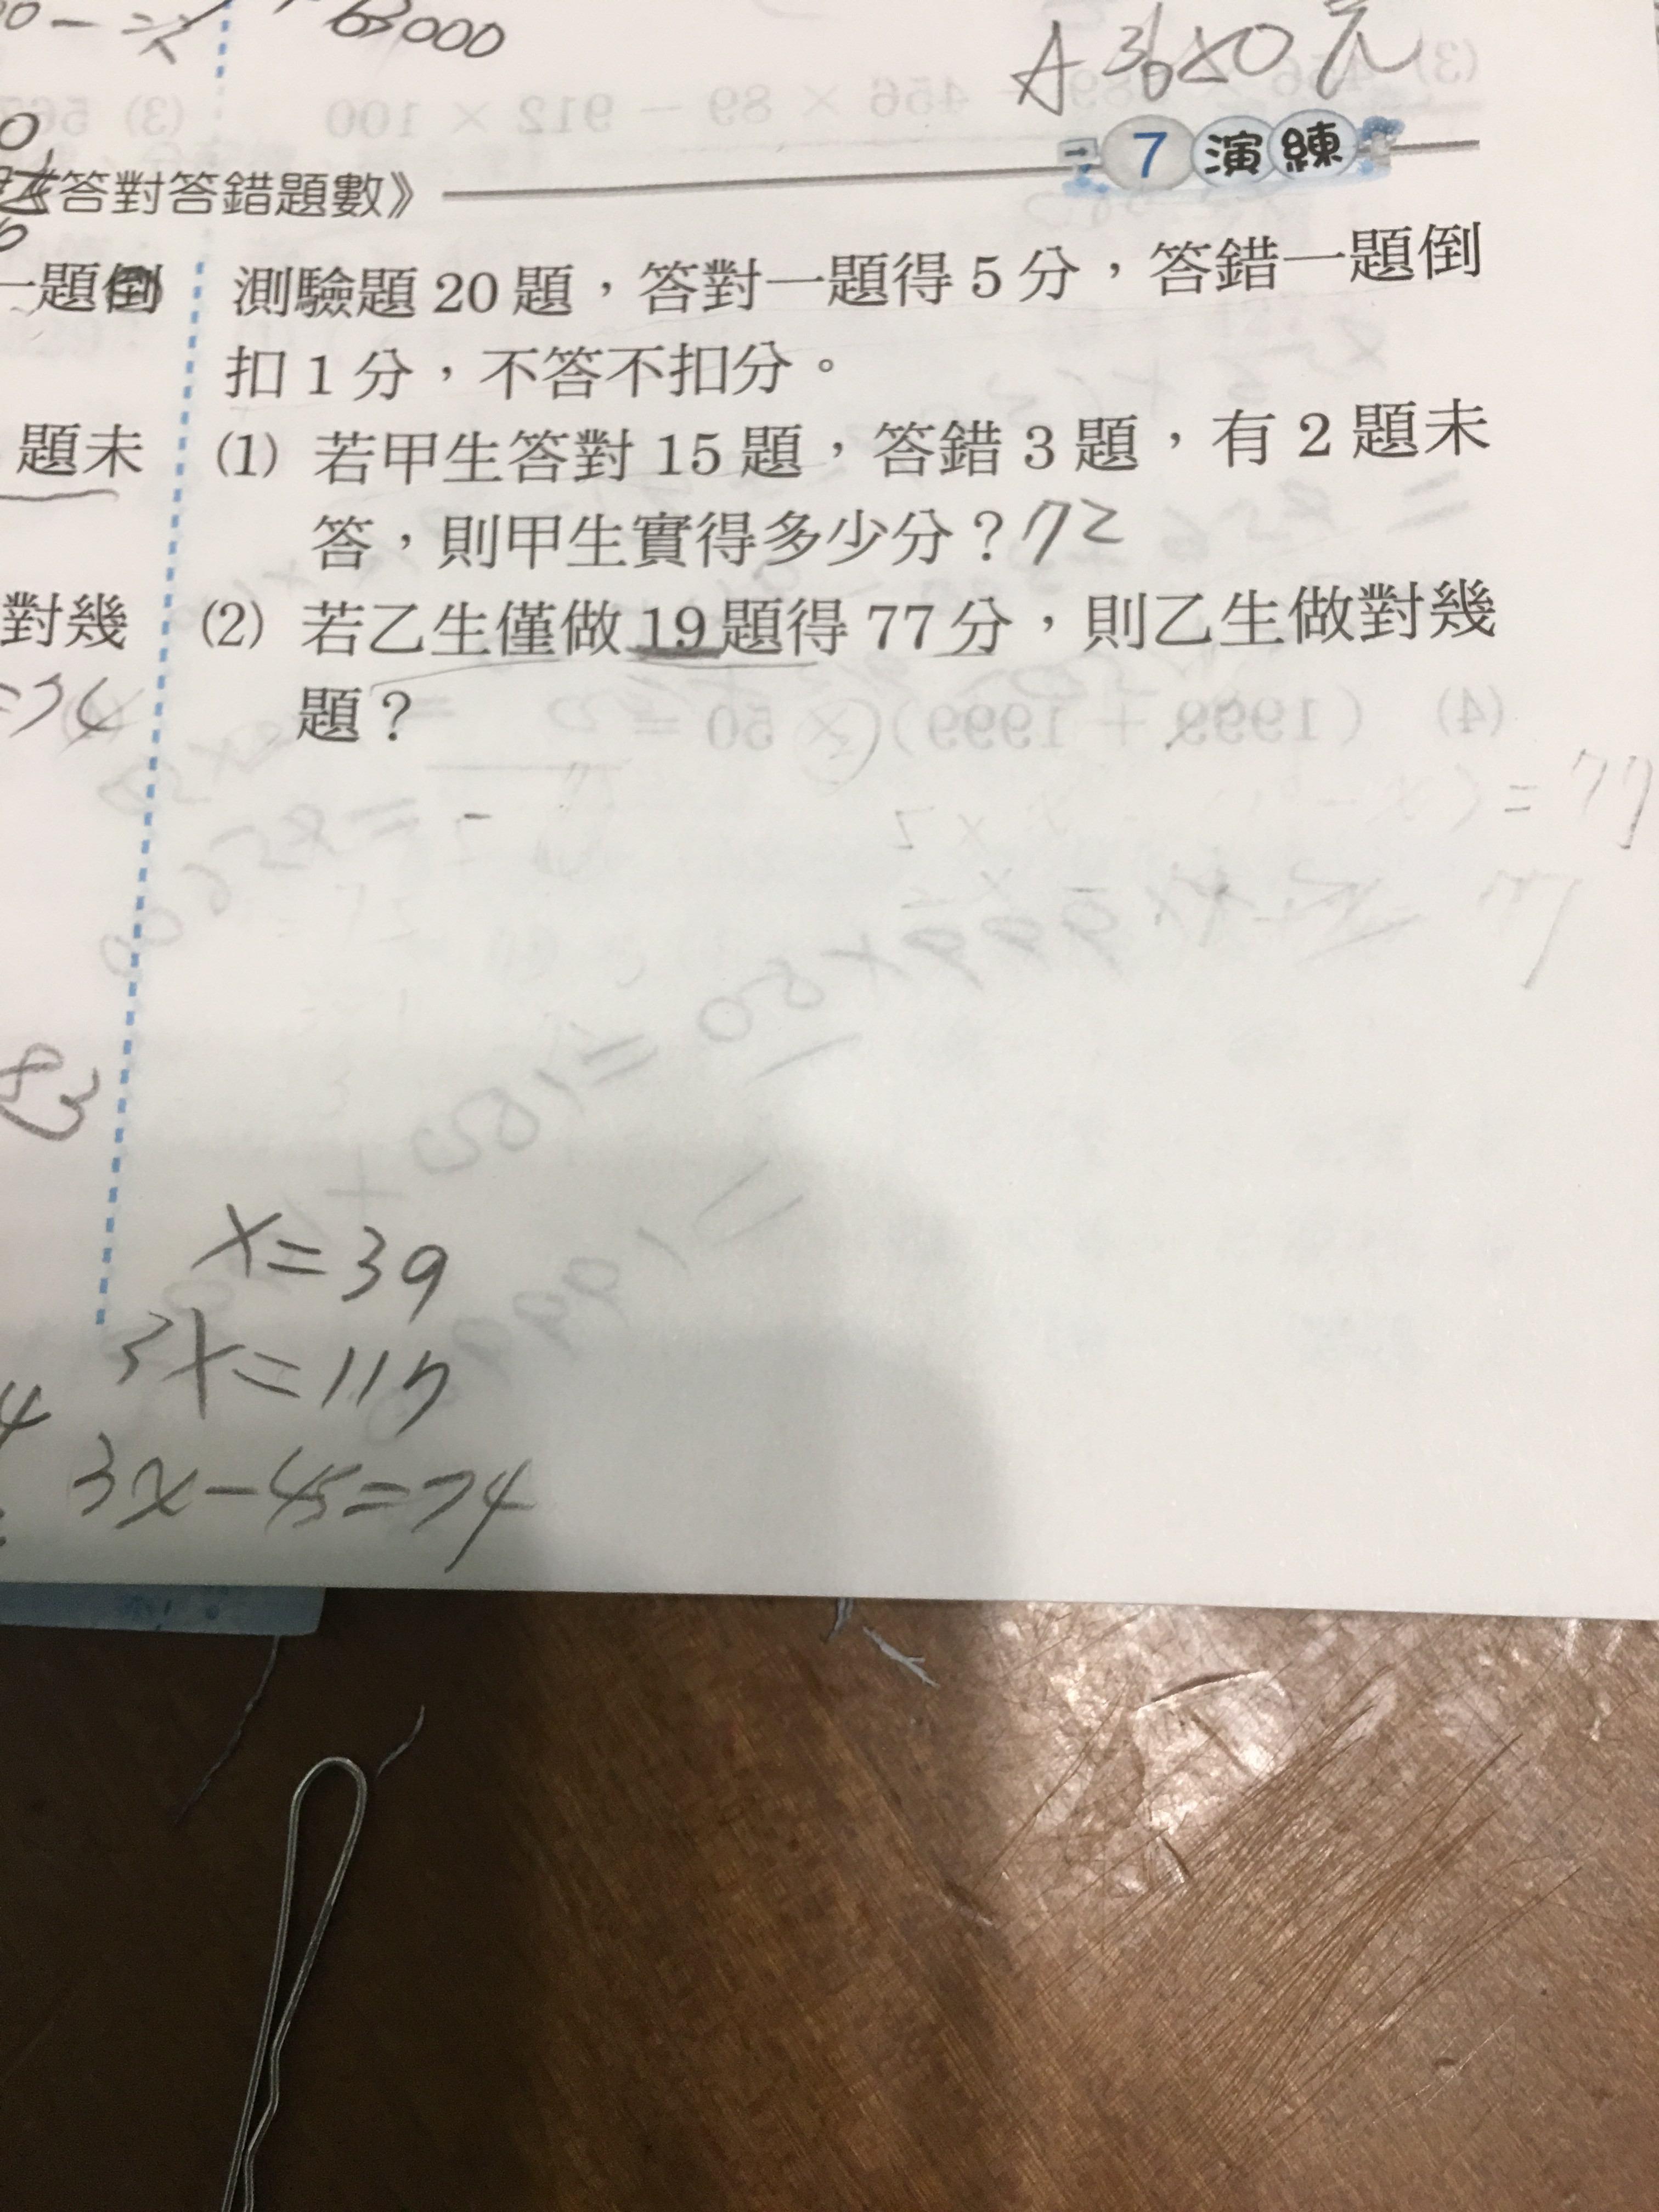 63000
A 3620 元
7 演練
《答對答錯題數》
一題倒
測驗題 20 題，答對一題得 5 分，答錯一題倒
扣 1 分，不答不扣分。
題未
(1) 若甲生答對 15 題，答錯 3 題，有 2 題未
答，則甲生實得多少分？72
對幾
(2) 若乙生僅做 19 題得 77 分，則乙生做對幾
題？
=74
= 77
x=39
3x=117
3x-45=74